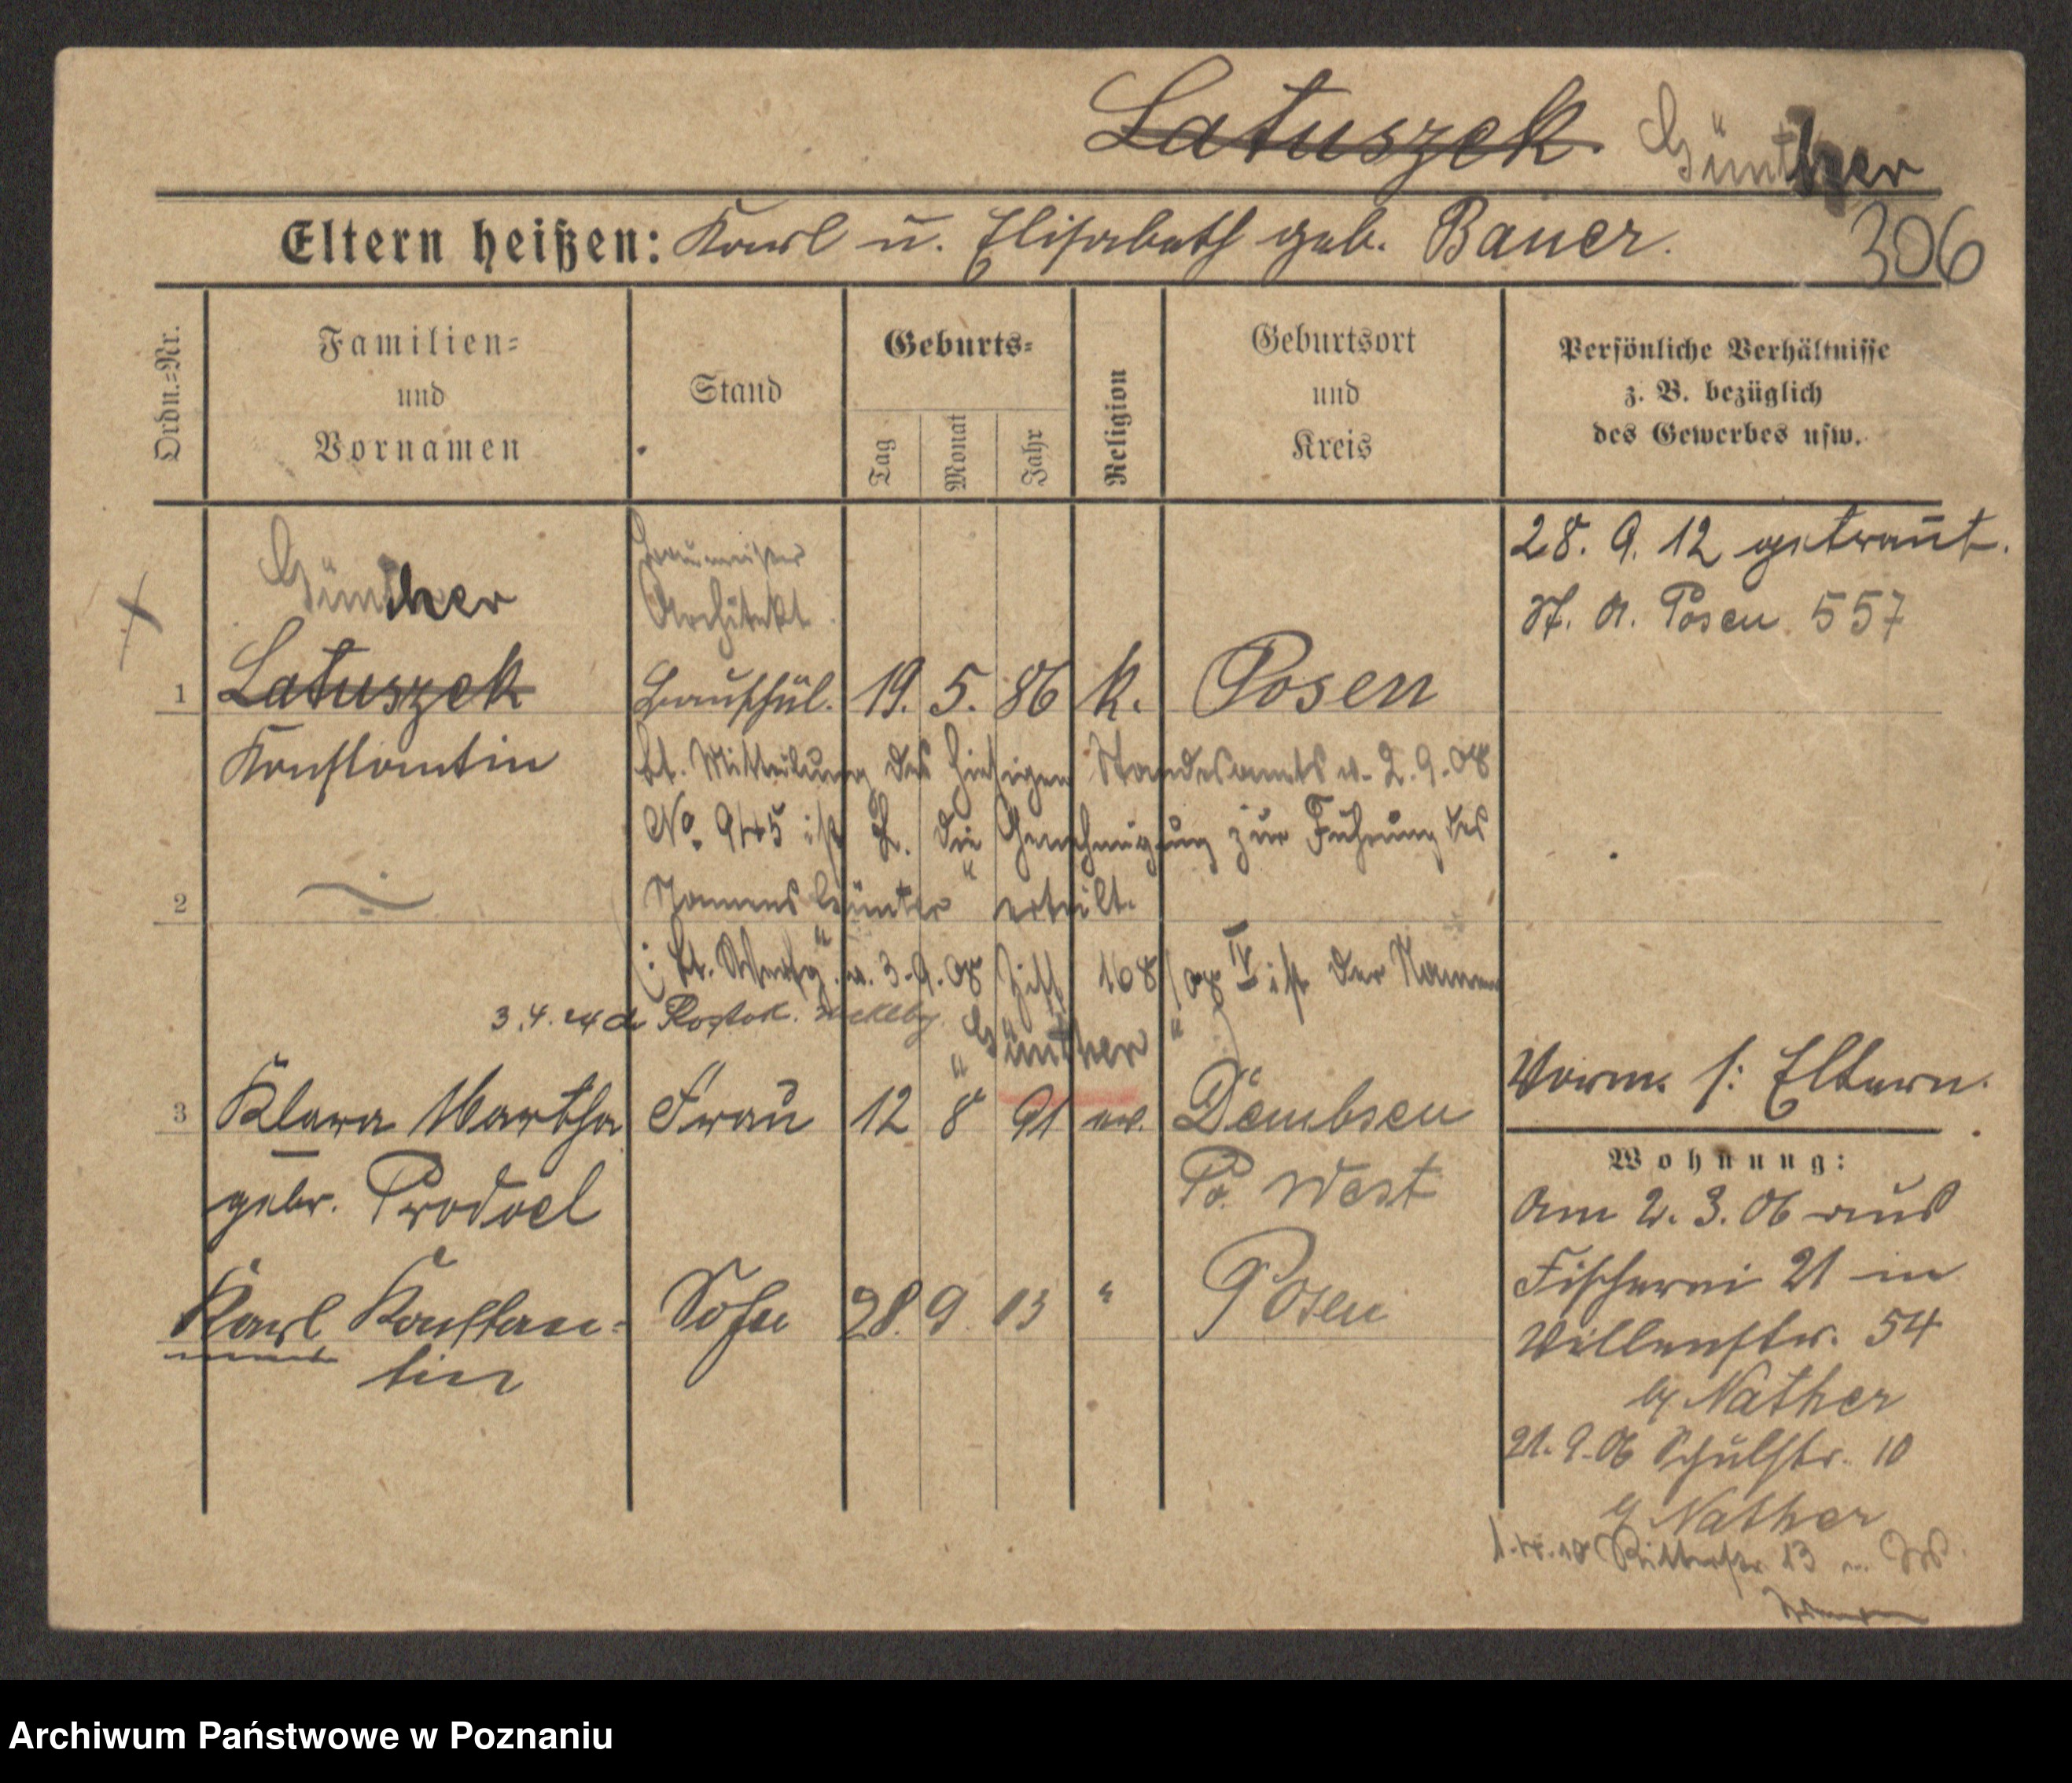 Latuszek. Günther
Eltern heißen: Karl u. Elisabeth geb. Bauer.
306
Ordn.=Nr.
Familien=
und
Vornamen
Stand
Geburts=
Tag
Monat
Jahr
Religion
Geburtsort
und
Kreis
Persönliche Verhältnisse
z. B. bezüglich
des Gewerbes usw.
28. 9. 12 getraut.
St. A. Posen 557
Günther
Baumeister
Architekt
1 Latuszek Bauschül. 19. 5. 86 k. Posen
Konstantin
Lt. Mitteilung des hiesigen Standesamts v. 2. 9. 08
No. 945 ist L. die Genehmigung zur Führung des
2 Namens "Günter" erteilt.
Lt. v. 3. 9. 08 168/08 IV ist der Namen
3. 4. 24 Rostok.
"Günther"
Vorm. s: Eltern.
3 Klara Martha Frau 12 8 91 ev. Dembsen
gebr. Prodoel Po. West
Karl Konstan= Sohn 28. 9. 13 " Posen
tin
Wohnung:
Am 2. 3. 06 aus
Fischerei 21 in
Villenstr. 54
b/ Nather
21. 9. 06 Schulstr. 10
b/ Nather
Ritterstr. 13
Archiwum Państwowe w Poznaniu